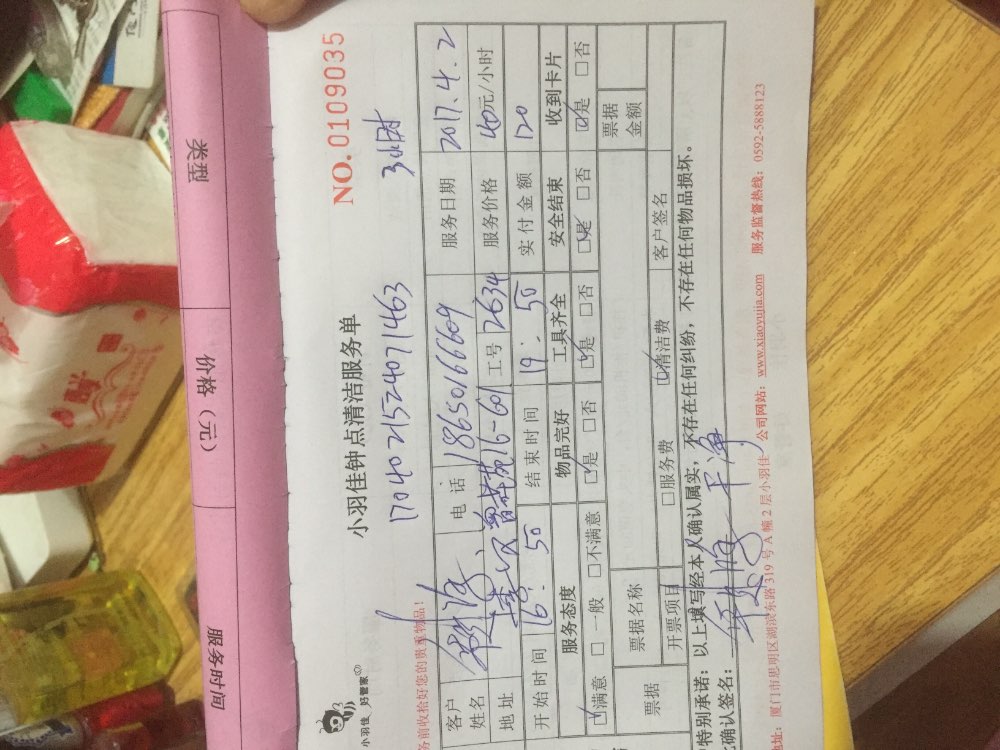 类型
价格（元）
服务时间
小羽佳 好管家
NO. 0109035
小羽佳钟点清洁服务单
17040215240711463 3小时
务前收拾好您的贵重物品！
客户姓名 电话 18650166609 服务日期 2017.4.2
地址 16-601 工号 2634 服务价格 40元/小时
开始时间 16:50 结束时间 19:50 实付金额 120
服务态度 物品完好 工具齐全 安全结束 收到卡片
☑满意 □一般 □不满意 ☑是 □否 ☑是 □否 ☑是 □否 ☑是 □否
票据 票据名称 票据金额
开票项目 □服务费 ☑清洁费 客户签名
特别承诺：以上填写经本人确认属实，不存在任何纠纷，不存在任何物品损坏。
确认签名： 干净
地址：厦门市思明区湖滨东路319号A幢2层小羽佳 公司网站：www.xiaoyujia.com 服务监督热线：0592-5888123